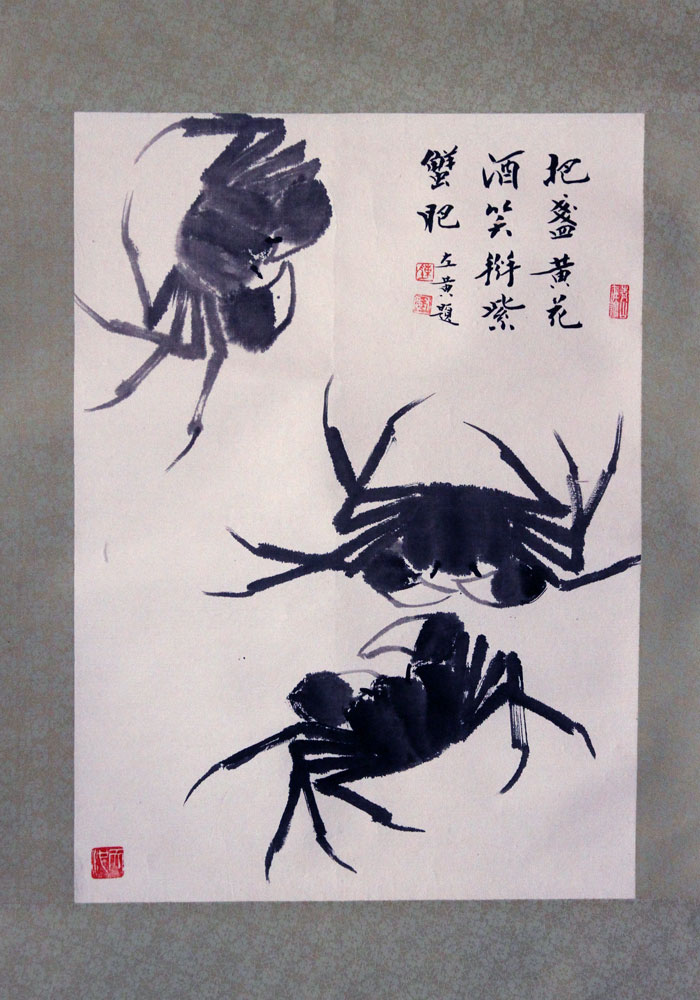 把盏黄花
酒笑掰紫
蟹肥
左黄题